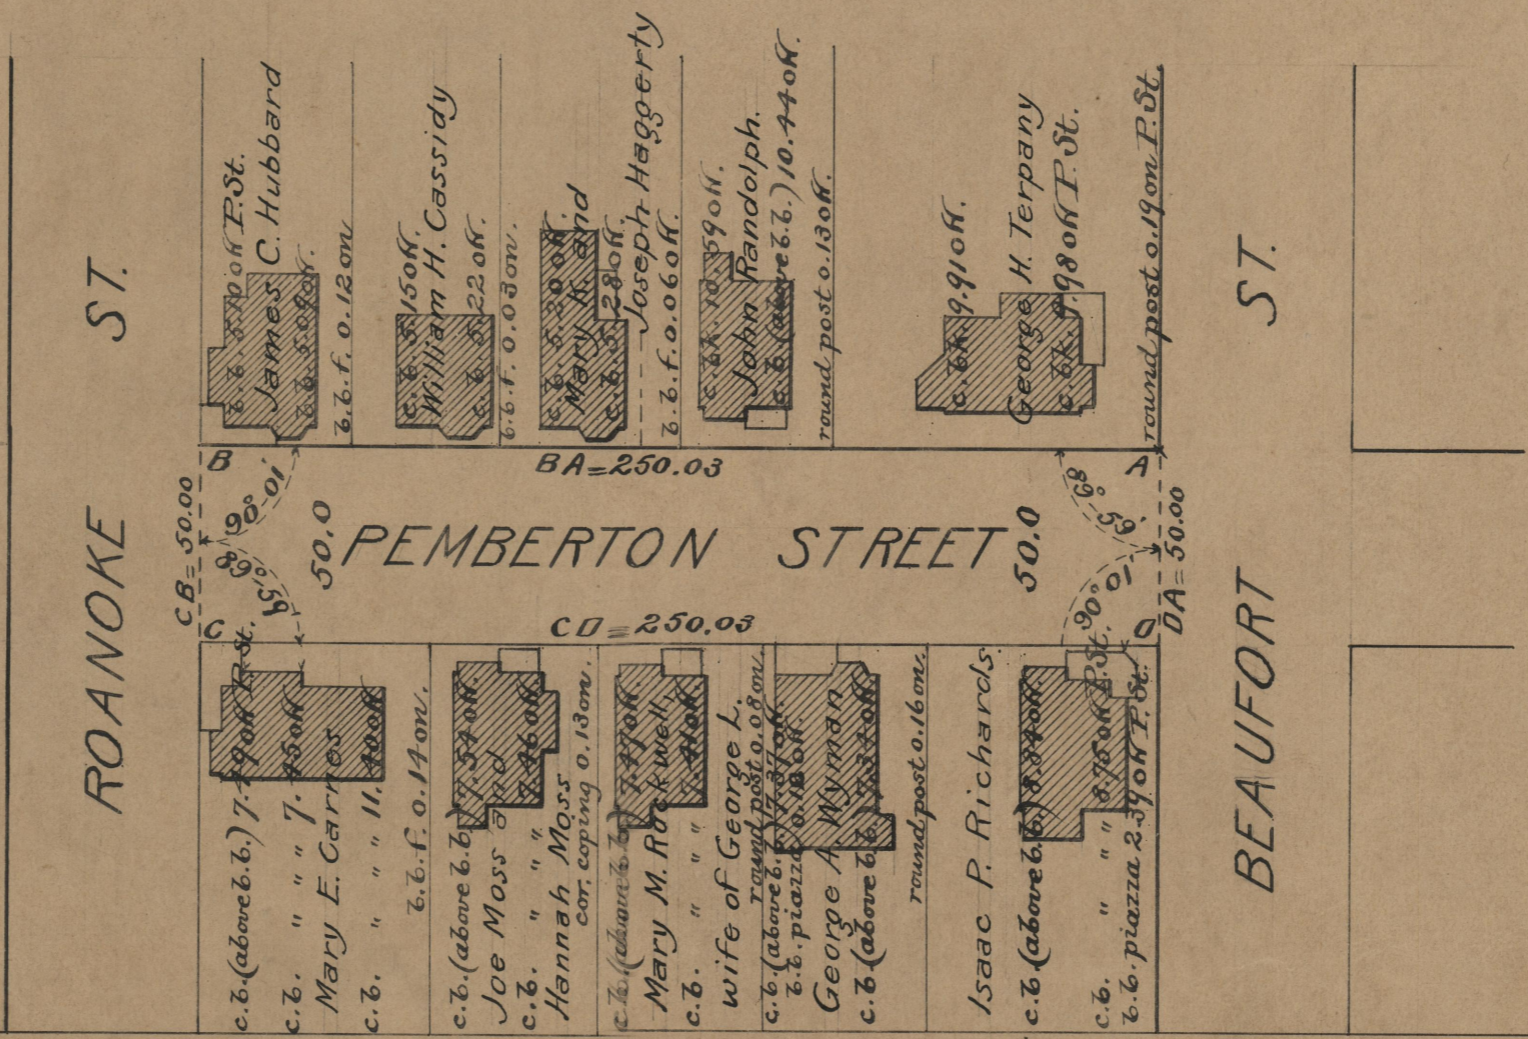 ROANOKE ST.
c.b. 5.10 off P. St.
James C. Hubbard
c.b. 5.09 off.
b.b.f. 0.12 on
c.b. 5.15 off.
William H. Cassidy
c.b. 5.22 off.
b.b.f. 0.03 on.
c.b. 5.20 off
Mary K. and
c.b. 5.28 off.
Joseph Haggerty
b.b.f. 0.06 off.
c. bk. 10.59 off.
John Randolph.
c.b. (above b.b.) 10.44 off.
round post 0.13 off.
c. bk. 9.91 off.
George H. Terpany
c. bk. 9.98 off P. St.
round post 0.19 on P. St.
B
BA = 250.03
A
CB = 50.00
90°-01'
89°-59'
50.0
PEMBERTON STREET
50.0
89°-59'
90°-01'
DA = 50.00
C
CD = 250.03
D
c.b. (above b.b.) 7.49 off P. St.
c.b. " " " 7.45 off
Mary E. Carnes
c.b. " " " 11.40 off
b.b.f. 0.14 on.
c.b. (above b.b.) 7.54 off.
Joe Moss and
c.b. " " " 7.46 off.
Hannah Moss
cor. coping 0.13 on.
c.b. (above b.b.) 7.47 off.
Mary M. Rockwell,
c.b. " " " 7.41 off.
wife of George L.
round post 0.08 on.
c.b. (above b.b.) 7.37 off.
b.b. piazza 0.18 off.
George A. Wyman
c.b. (above b.b.) 7.34 off.
round post 0.16 on.
Isaac P. Richards.
c.b. (above b.b.) 8.84 off.
c.b. " " 8.75 off P. St.
b.b. piazza 2.39 off P. St.
BEAUFORT ST.